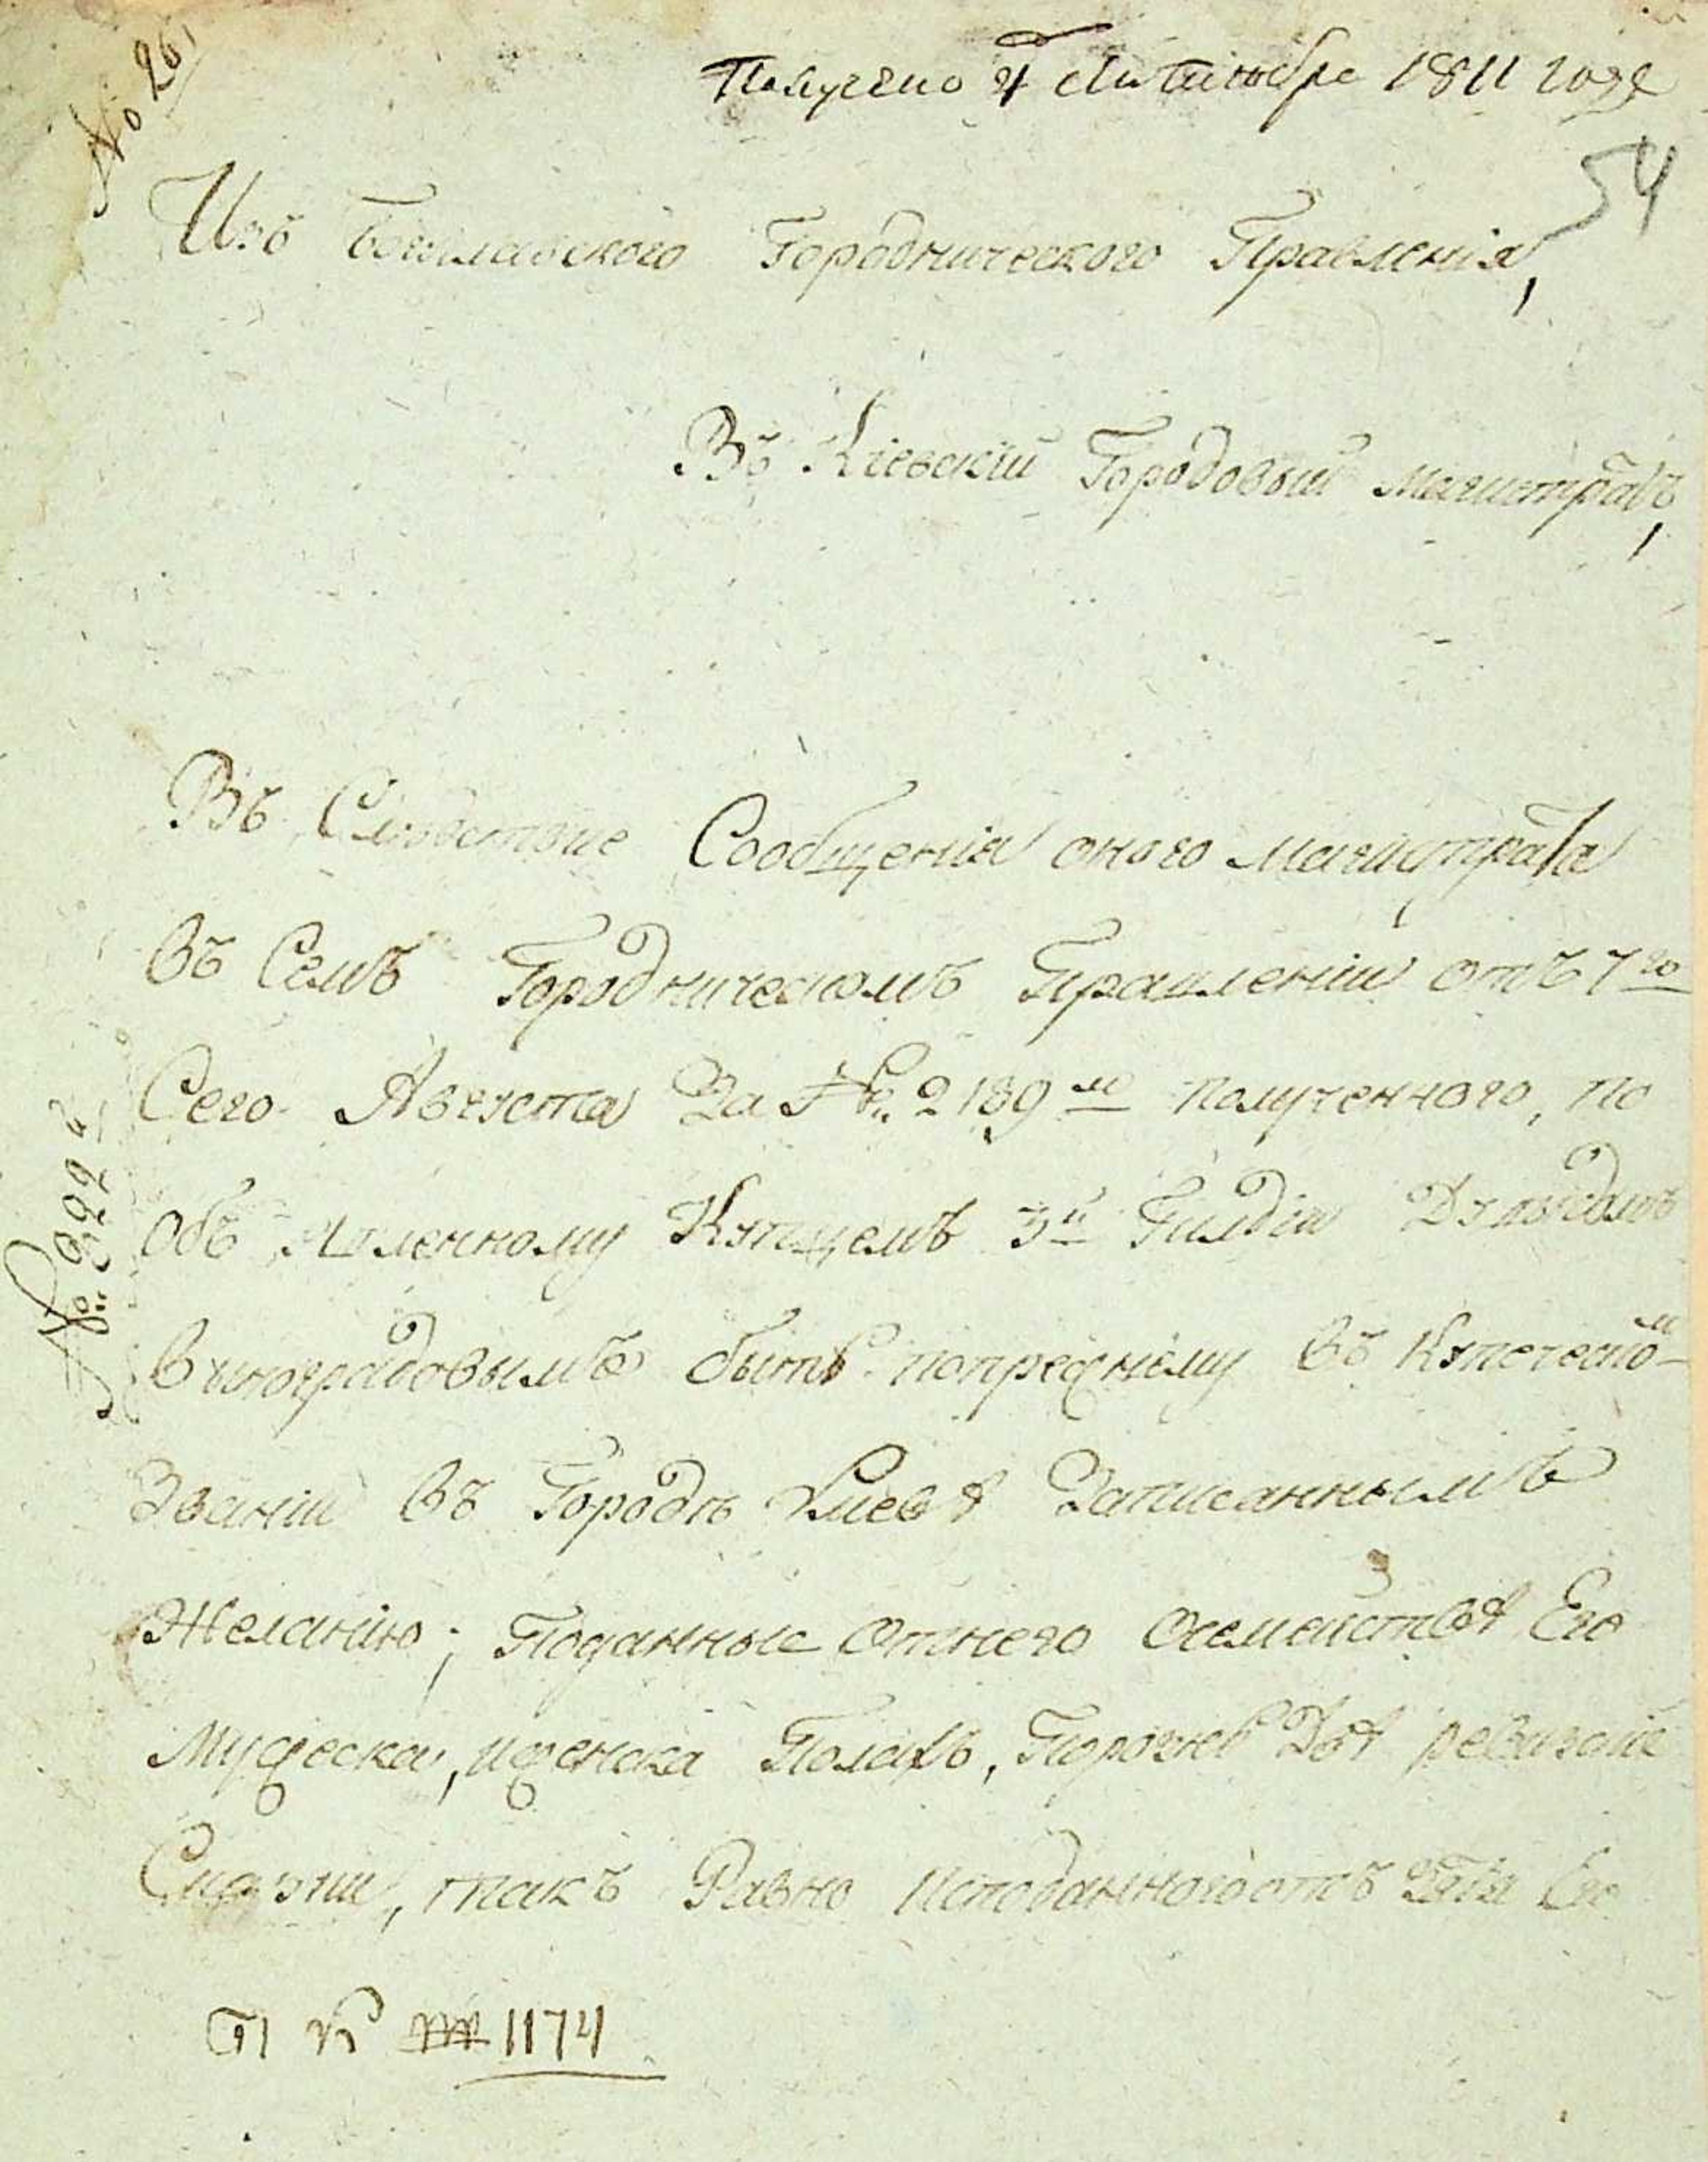 No 26
Получено 4 Октября 1811 года
54
Изъ Богуславского Городнического Правления,
Въ Кіевскій Городовый магистратъ,
Въ Следствие Сообщения оного магистрата
въ Семъ Городническомъ Правленіи отъ 7го
Сего Августа За № 2189м полученного, по
объ Явленному Купцемъ 3й Гилдіи Давыдомъ
Виноградовымъ быть попрежнему въ Купеческом
Званіи въ Городѣ Киеве Записаннымъ
Желанію; Поданные отнего осемействе Его
мужеска, иженска Полахъ, Порожнѣ Две ревизские
Скаски, такъ Равно
№ 2922
1174